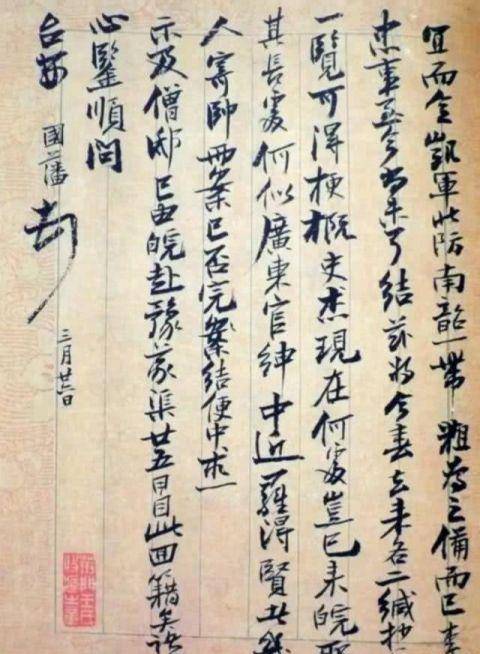 宜而令凱軍北防南韶一帶粗為之備而已李
忠事至今尚未了結茲將今春去來各二緘抄
一覽可得梗概史杰現在何處豈已來皖
其長處何似廣東官紳中近羅得賢北
人寄帥兩案已否完案結便中求一
示及僧邸已由皖赴豫蒙渠廿五日自此回籍矣
心鑒順問
台安
國藩頓
三月廿三日